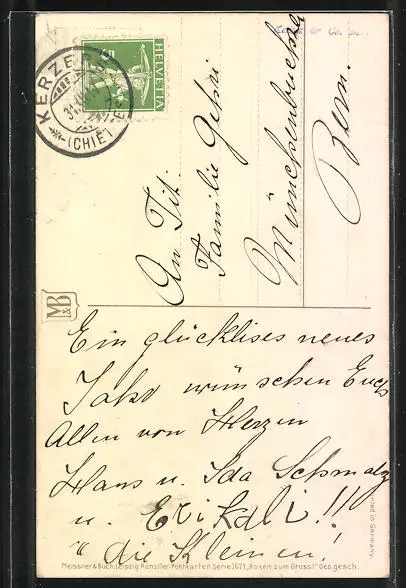 KERZERS
(CHIÈTRES)
31
HELVETIA
5
An Tit.
Familie Gehri
Münchenbuchsee
Bern.
M&B
Ein glückliches neues
Jahr wünschen Euch
Allen von Herzen
Hans u. Ida Schmalz
u. Erikali!!!
" die Kleinen!
Meissner & Buch, Leipzig. Künstler-Postkarten Serie 1671, "Rosen zum Gruss!" Ges. gesch.
Printed in Germany.